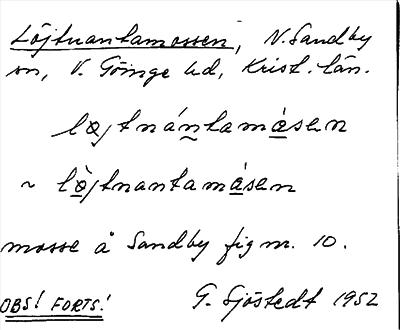 Löjtnantamossen, N. Sandby
sn, V. Göinge hd, Krist. län.
løjtnántamåsen
~ lø̀jtnantamåsen
mosse å Sandby fig m. 10.
OBS! FORTS! G. Sjöstedt 1952